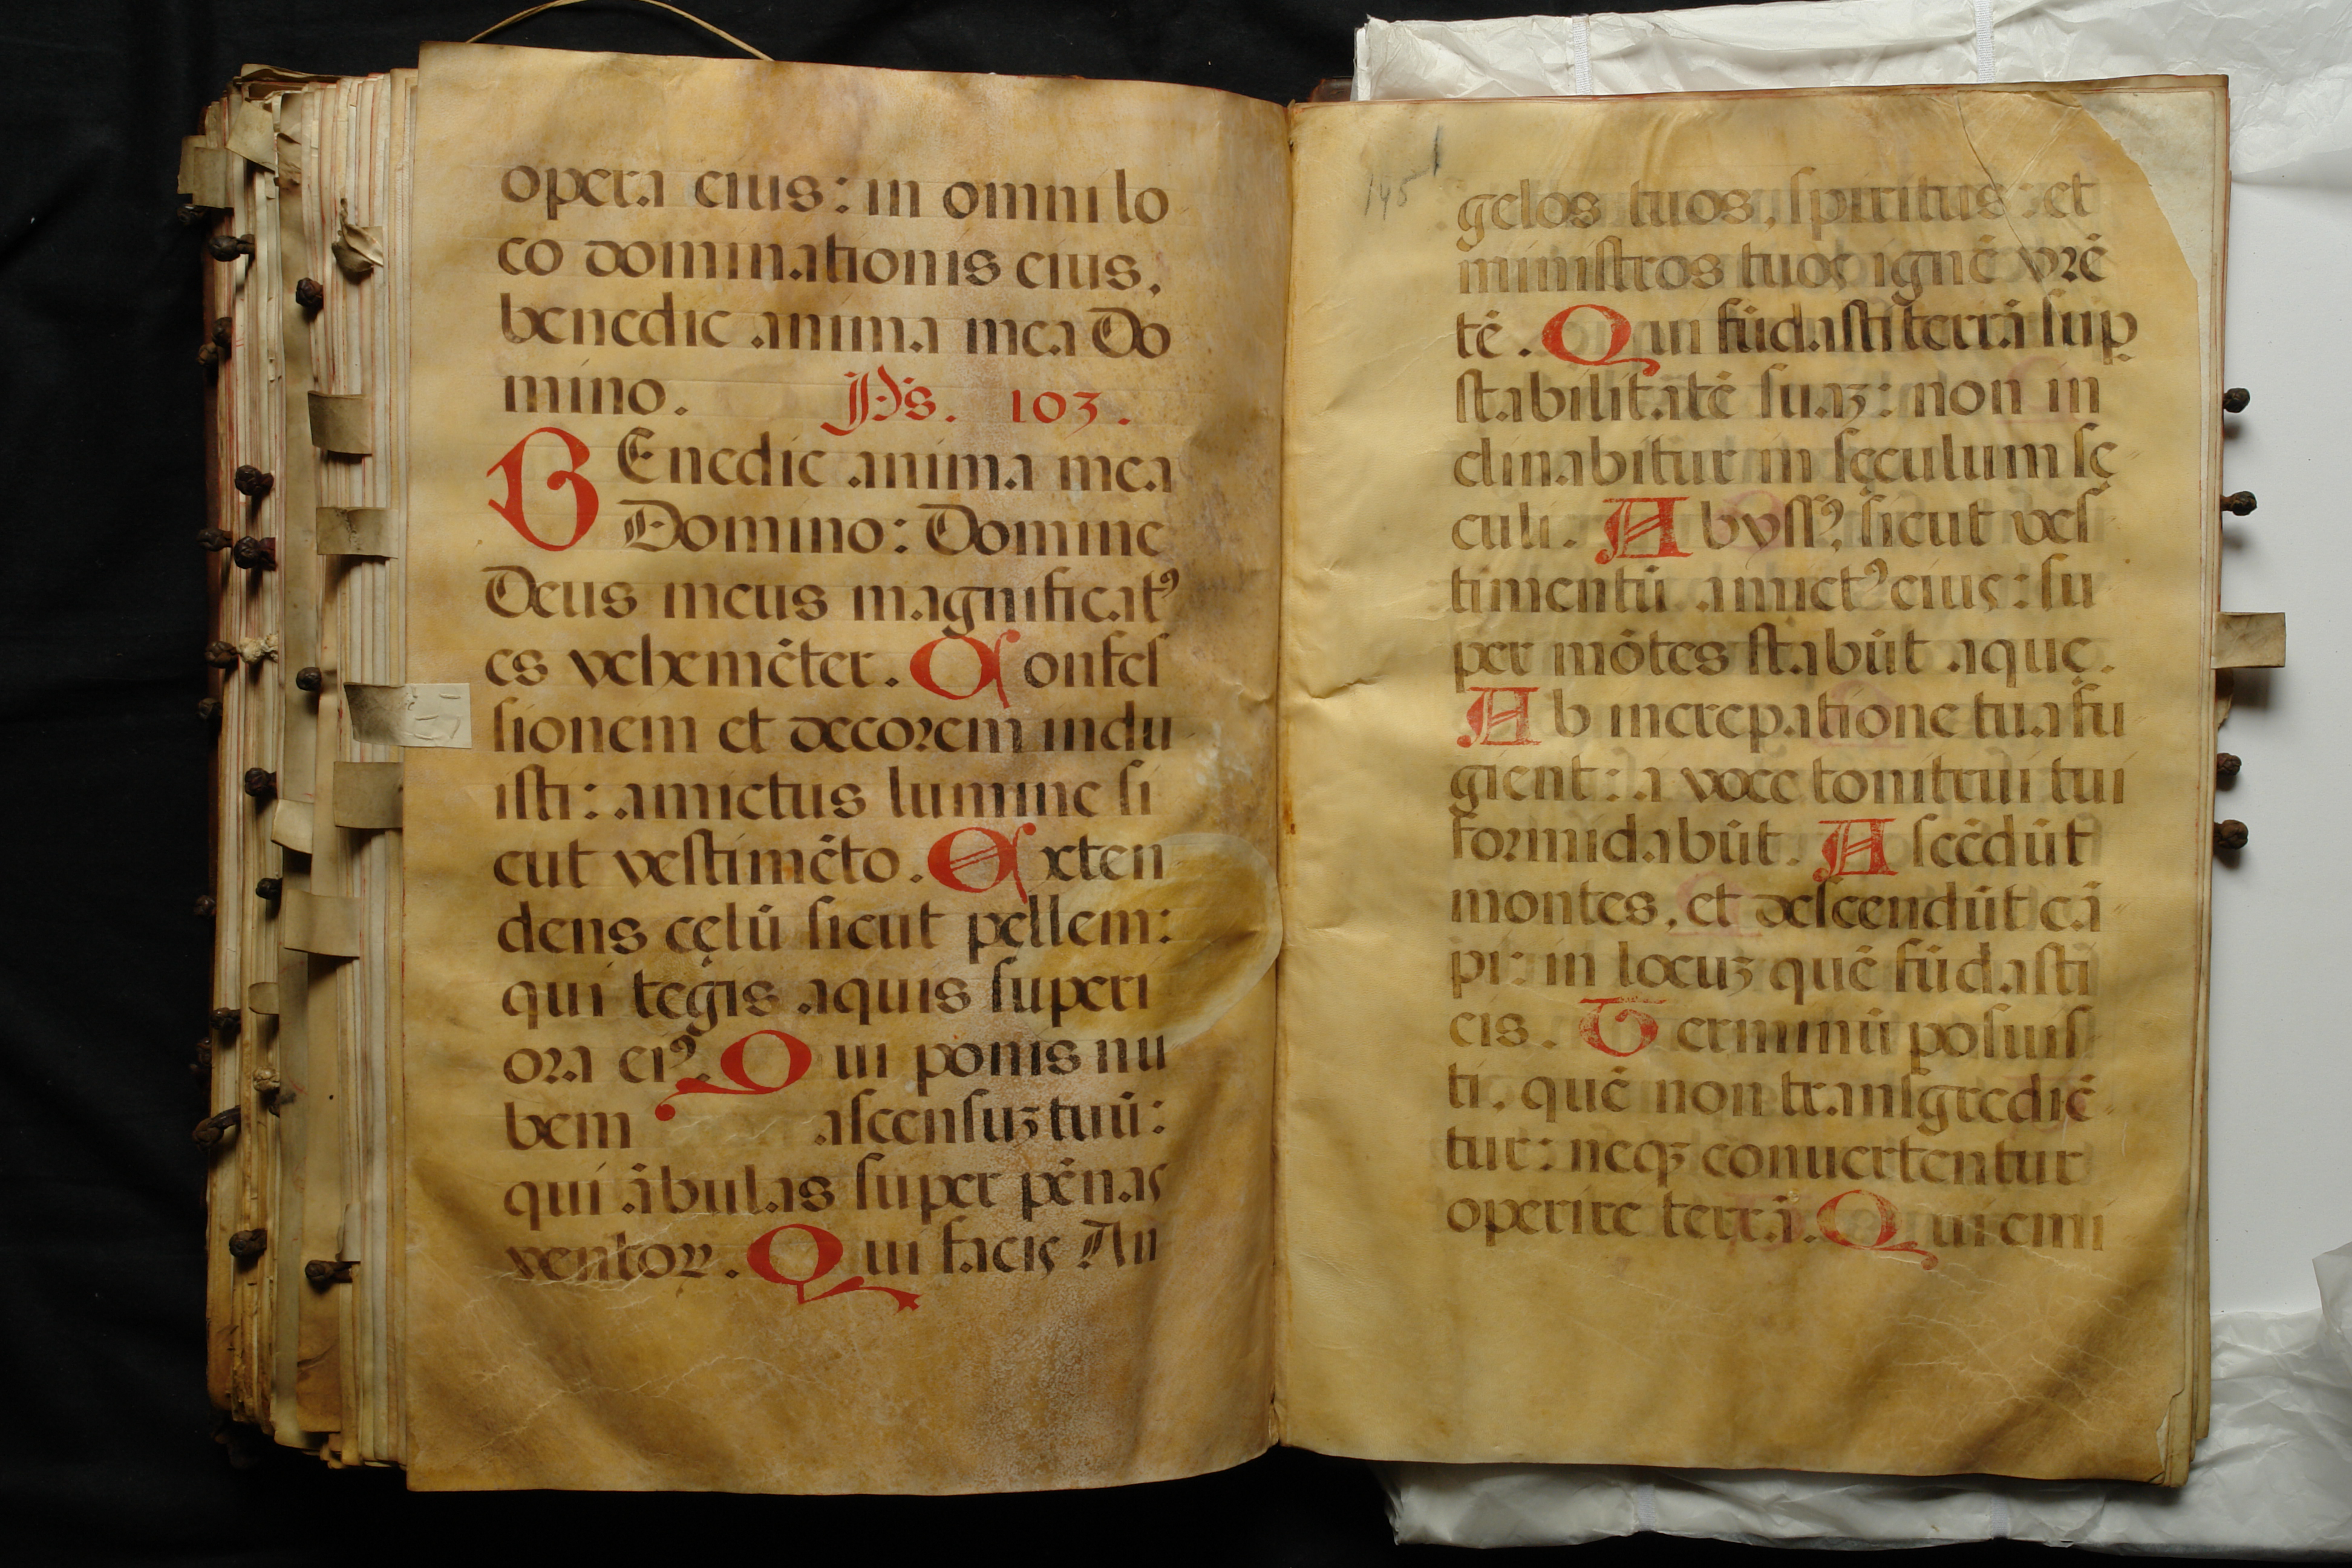 opera eius: in omni lo
co dominationis eius,
benedic anima mea Do
mino. Ps. 103.
BEnedic anima mea
Domino: Domine
Deus meus magnificatꝰ
es vehemẽter. Confeſ
ſionem et decorem indu
iſti: amictus lumine ſi
cut veſtimẽto. Exten
dens cęlũ ſicut pellem:
qui tegis aquis ſuperi
ora eiꝰ. Qui ponis nu
bem aſcenſuꝫ tuũ:
qui ãbulas ſuper pẽnas
ventoꝝ. Qui facis An
145
gelos tuos, ſpiritus: et
miniſtros tuos ignẽ vrẽ
tẽ. Qui fũdaſti terrã ſuꝑ
ſtabilitatẽ ſuaꝫ: non in
clinabitur in ſęculum ſę
culi. Abyſſꝰ, ſicut veſ
timentũ amictꝰ eius: ſu
per mõtes ſtabũt aquę.
Ab increpatione tua fu
gient: a voce tonitrui tui
formidabũt. Aſcẽdũt
montes, et deſcendũt cã
pi: in locuꝫ quẽ fũdaſti
eis. Terminũ poſuiſ
ti, quẽ non tranſgrediẽ
tur: neqꝫ conuertentur
operire terrã. Qui emi